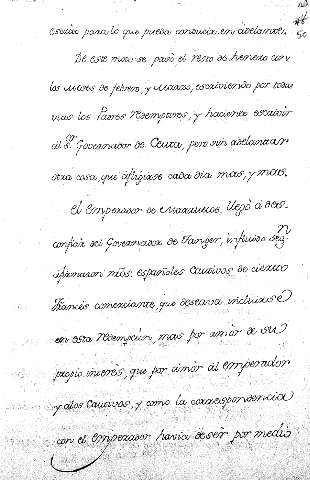 50
escriv. para lo que pueda conducir en adelante.
De este modo se pasó el resto de henero con
los meses de febrero, y Marzo, escriviendo por todas
vias los Padres Redemptores, y haciendo escrivir
al S.or Governador de Ceuta, pero sin adelantar
otra cosa, que afligirse cada dia mas, y mas.
El Emperador de Marruecos, llegó á des-
confiar del Governador de Tanger, influido seg.n
afirmaron nros. españoles Cautivos, de cierto
francés comerciante, que deseava incluirse
en esta Redempcion mas por amor de su
propio interés, que por amor al Emperador
y alos Cautivos, y como la correspondencia
con el Emperador havia deser por medio